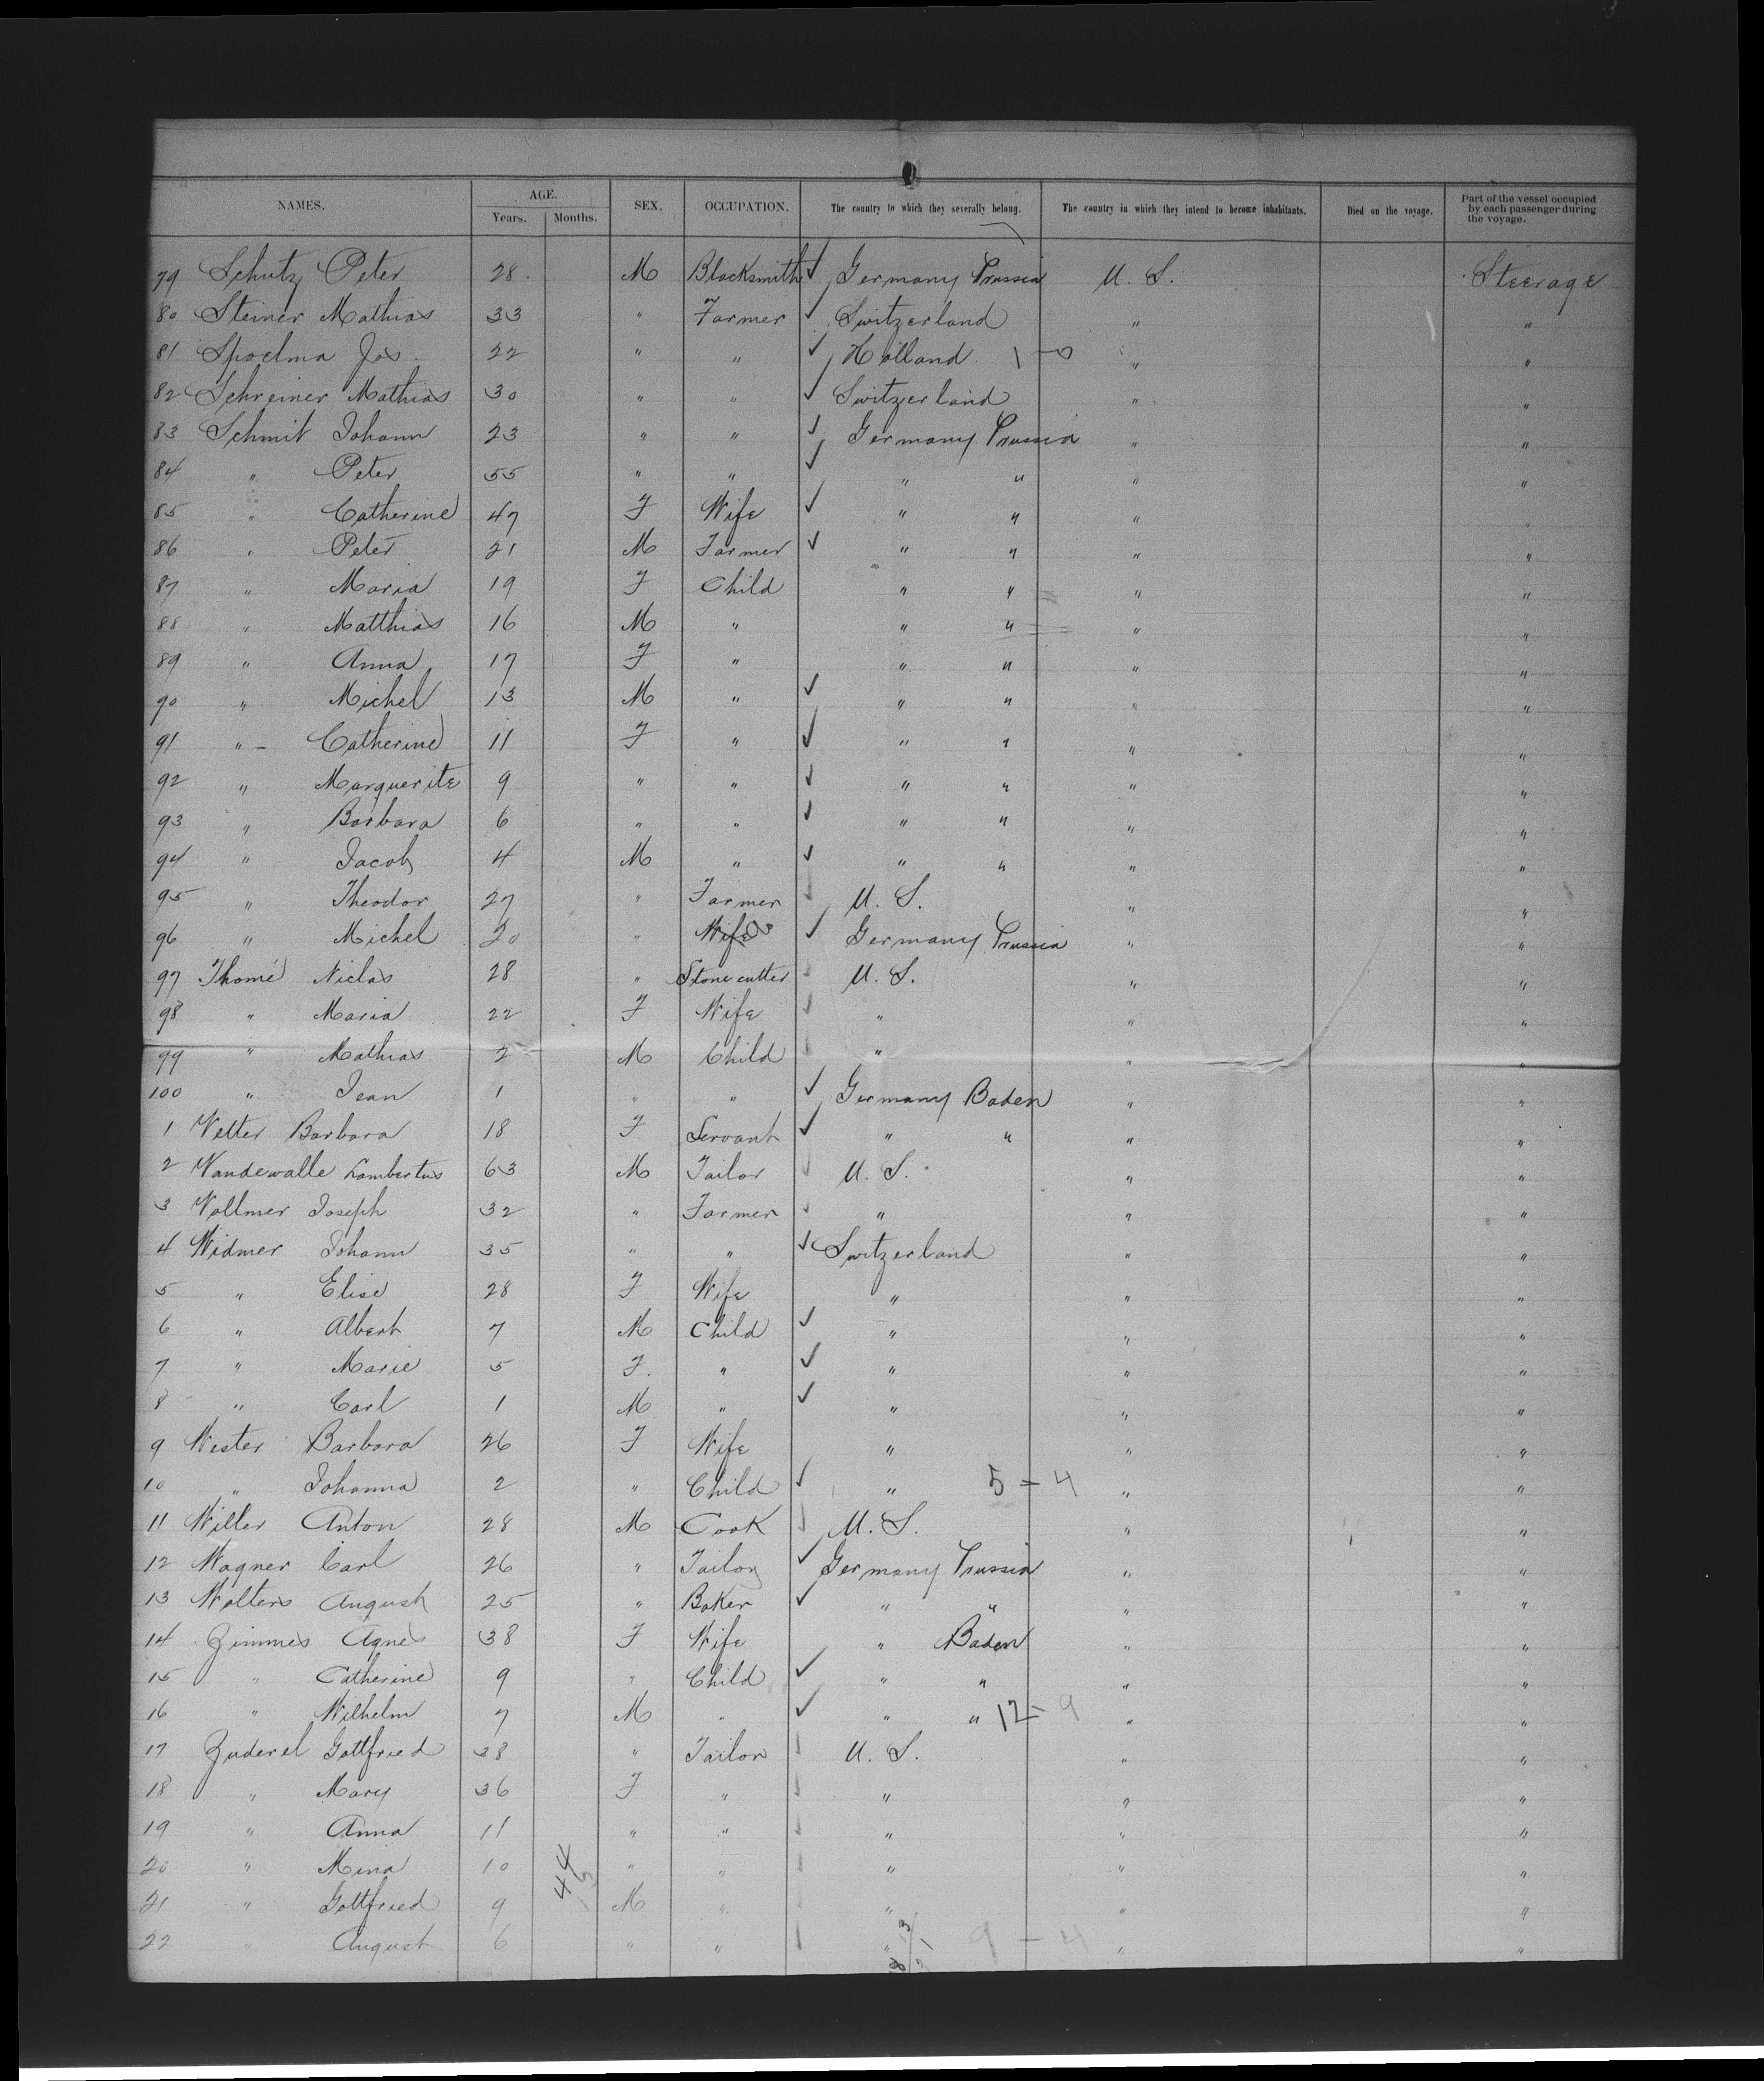 NAMES. AGE. Years. Months. SEX. OCCUPATION. The country to which they severally belong. The country in which they intend to become inhabitants. Died on the voyage. Part of the vessel occupied by each passenger during the voyage.
79 Schutz Peter 28. M Blacksmith ✓ Germany Prussia U. S. Steerage
80 Steiner Mathias 33 " Farmer ✓ Switzerland " "
81 Spoelma Jos. 22 " " ✓ Holland 1-0 " "
82 Schreiner Mathias 30 " " ✓ Switzerland " "
83 Schmit Johann 23 " " ✓ Germany Prussia " "
84 " Peter 55 " " ✓ " " " "
85 " Catherine 47 F Wife ✓ " " " "
86 " Peter 21 M Farmer ✓ " " " "
87 " Maria 19 F Child " " " "
88 " Matthias 16 M " " " " "
89 " Anna 17 F " " " " "
90 " Michel 13 M " ✓ " " " "
91 " - Catherine 11 F " ✓ " " " "
92 " Marguerite 9 " " ✓ " " " "
93 " Barbara 6 " " ✓ " " " "
94 " Jacob 4 M " ✓ " " " "
95 " Theodor 27 " Farmer U. S. " "
96 " Michel 20 " Wife ✓ Germany Prussia " "
97 Thomé Niclas 28 " Stone cutter U. S. " "
98 " Maria 22 F Wife " " "
99 " Mathias 2 M Child " " "
100 " Jean 1 " " ✓ Germany Baden " "
1 Vetter Barbara 18 F Servant ✓ " " " "
2 Vandewalle Lambertus 63 M Tailor U. S. " "
3 Vollmer Joseph 32 " Farmer " " "
4 Widmer Johann 35 " " ✓ Switzerland " "
5 " Elise 28 F Wife " " "
6 " Albert 7 M Child ✓ " " "
7 " Marie 5 F. " ✓ " " "
8 " Carl 1 M " ✓ " " "
9 Wester Barbara 26 F Wife " " "
10 " Johanna 2 " Child ✓ " 5 = 4 " "
11 Willer Anton 28 M Cook U. S. " "
12 Wagner Carl 26 " Tailor ✓ Germany Prussia " "
13 Wolters August 25 " Baker ✓ " " " "
14 Zimmes Agnes 38 F Wife " Baden " "
15 " Catherine 9 " Child ✓ " " " "
16 " Wilhelm 7 M " ✓ " " 12 - 9 " "
17 Zuderel Gottfried 38 " Tailor U. S. " "
18 " Mary 36 F " " " "
19 " Anna 11 " " " " "
20 " Mina 10 " " " " "
21 " Gottfried 9 M " " " "
22 " August 6 " " " 9 - 4 " "
44